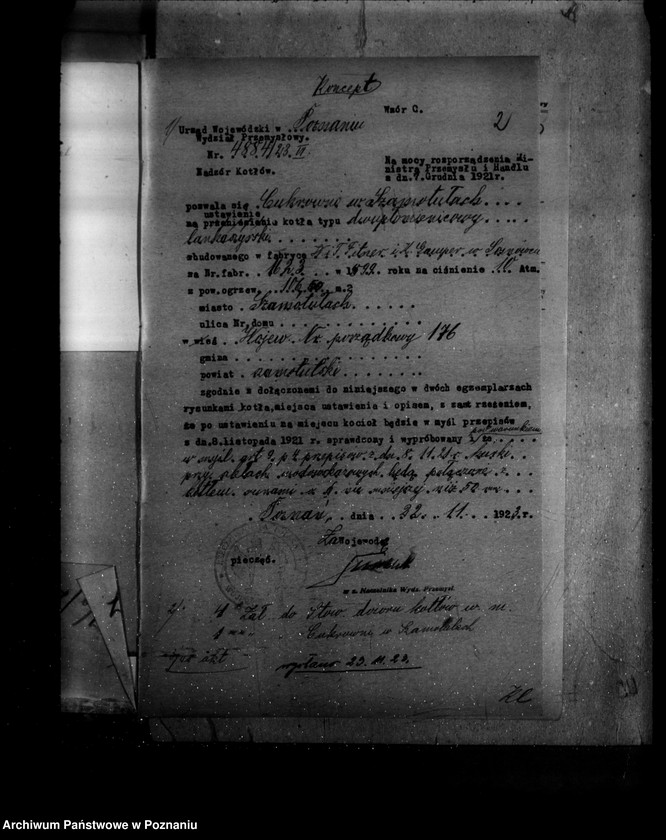 Koncept
Wzór C.
2
1/ Urząd Wojewódzki w Poznaniu
Wydział Przemysłowy.
Nr. 4884/23. III
Nadzór Kotłów.
Na mocy rozporządzenia Mi-
nistra Przemysłu i Handlu
z dn. 7. Grudnia 1921r.
pozwala się Cukrownia w Szamotułach
ustawienie
na przeniesienie kotła typu dwupłomienicowy
lankaszyrski
zbudowanego w fabryce W. Fitzner i K. Gamper w Sosnowcu
za Nr. fabr. w 1922 roku na ciśnienie 10 Atm.
z pow. ogrzew. m.2
miasto Szamotułach
ulica Nr. domu
wieś Nr. porządkowy 176
gmina
powiat szamotulski
zgodnie z dołączonemi do niniejszego w dwóch egzemplarzach
rysunkami kotła, miejsca ustawienia i opisem, z zastrzeżeniem,
że po ustawieniu na miejscu kocioł będzie w myśl przepisów
z dn. 8. listopada 1921 r. sprawdzony i wypróbowany
w myśl art 9. p 4 przepisów z dn. 8. 11. 21 r.
przy będą połączone z
kotłem rurami o nie mniejszej niż 50
Poznań, dnia 22. 11. 1923. r.
Za Wojewodę
pieczęć.
w z. Naczelnika Wydz. Przemysł
2. 4 Zał do Stow. dozoru kotłów w m.
1 Cukrownia w Szamotułach
wysłano 23. 11. 23.
Archiwum Państwowe w Poznaniu